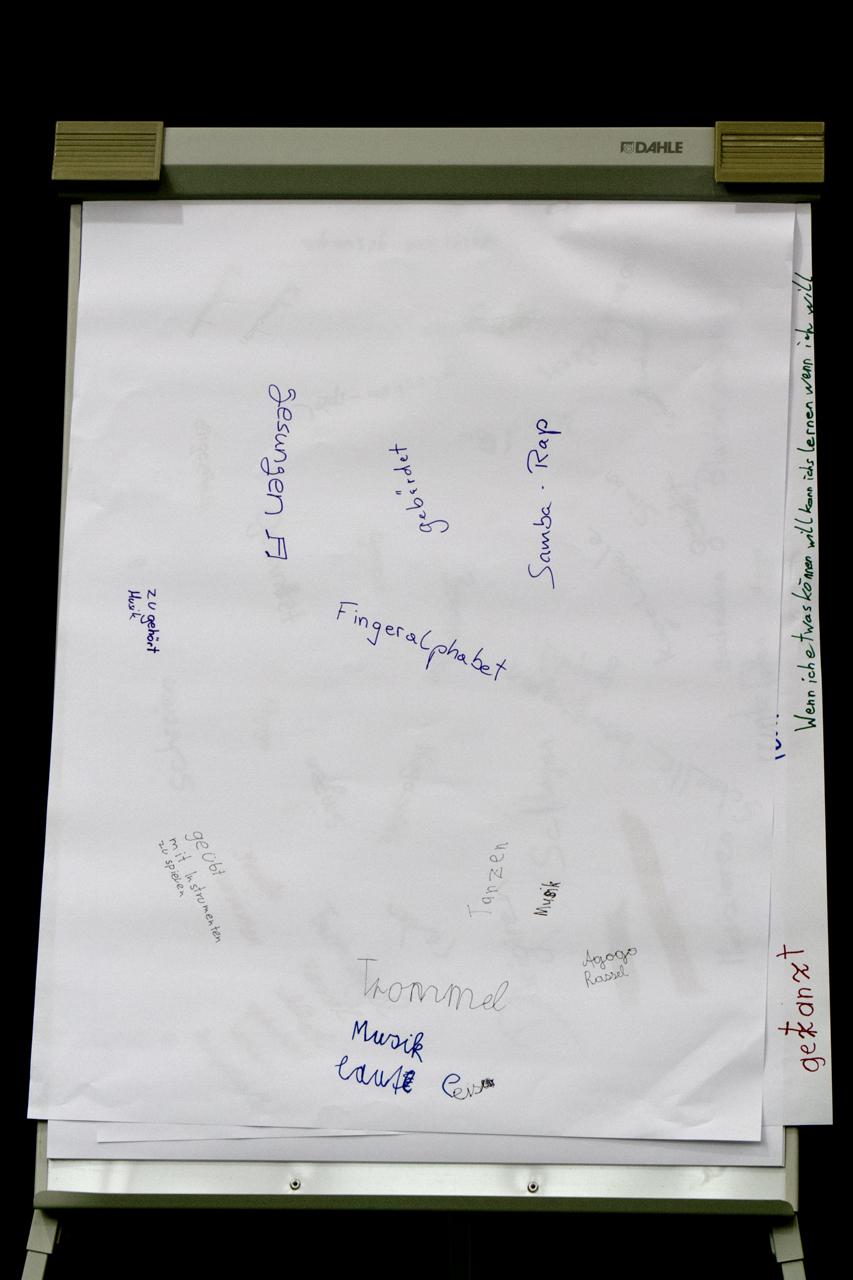 DAHLE
gesungen
gebärdet
Samba - Rap
Wenn ich etwas können will kann ichs lernen wenn ich will
zugehört
Musik
Fingeralphabet
geübt
mit Instrumenten
zu spielen
Tanzen
Musik
Agogo
Rassel
Trommel
Musik
laute
getanzt